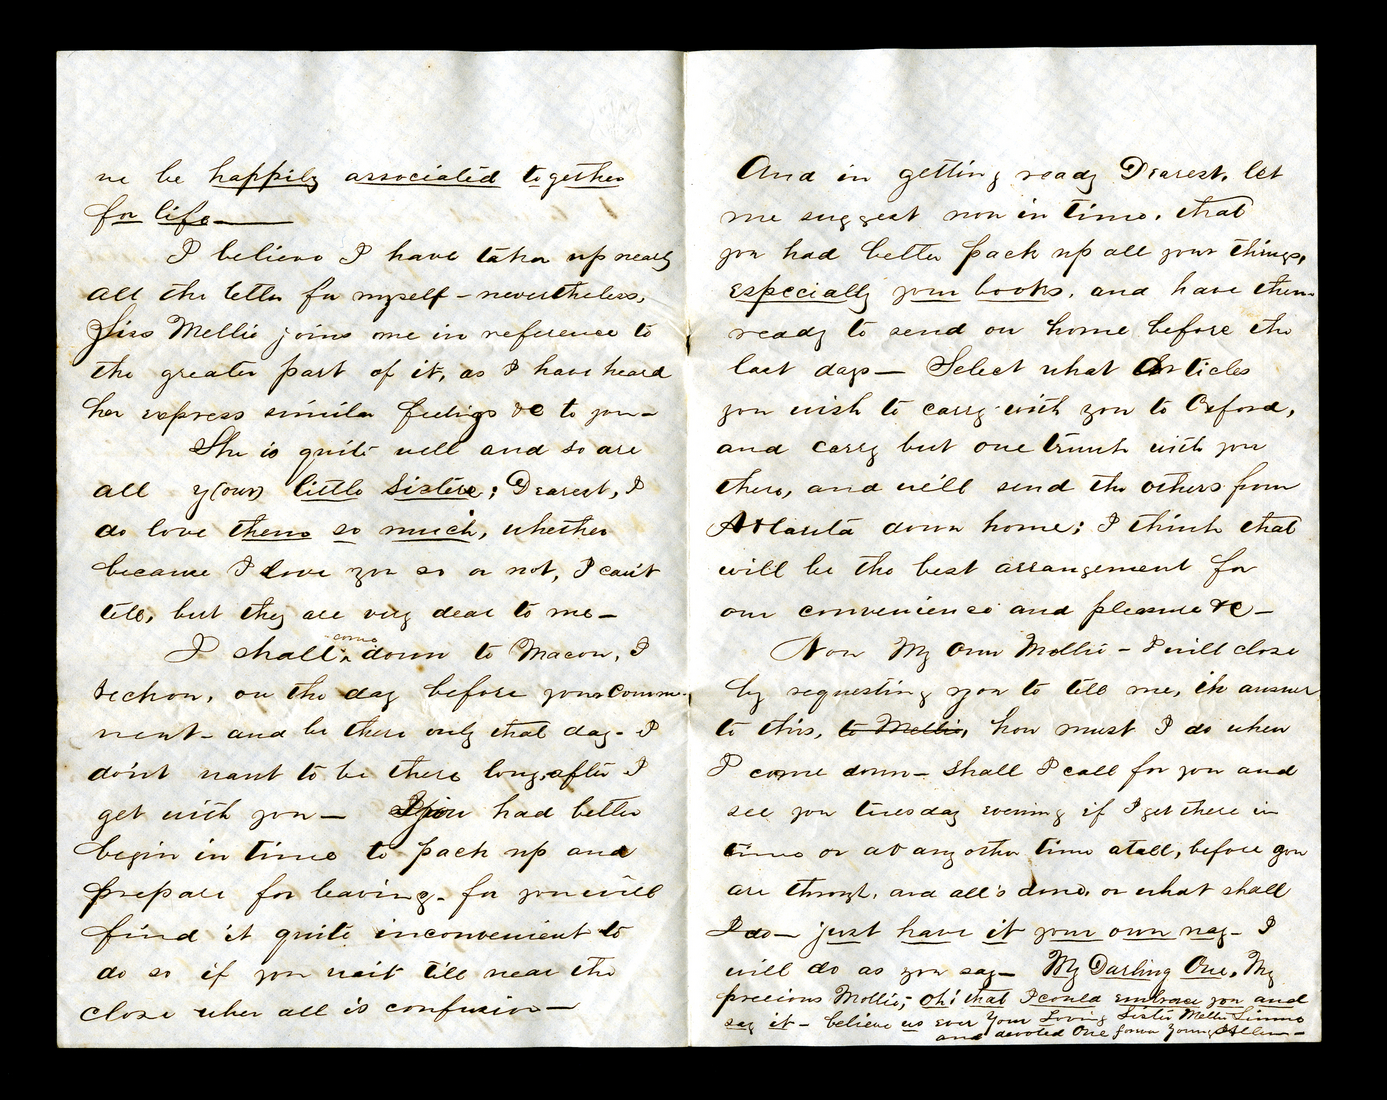 we be happily associated together
for life
I believe I have taken up nearly
all the letter for myself - nevertheless,
Siss Mellie joins me in reference to
the greater part of it, as I have heard
her express similar feelings &c to you -
She is quite well and so are
all y(our) little Sisters; Dearest, I
do love them so much, whether
because I love you so or not, I can't
tell, but they are very dear to me -
I shall come down to Macon, I
reckon, on the day before your Comm-
ment - and be there only that day - I
don't want to be there long, after I
get with you - you had better
begin in time to pack up and
prepare for leaving - for you will
find it quite inconvenient to
do so if you wait till near the
close when all is confusion -
And in getting ready Dearest, let
me suggest now in time, that
you had better pack up all your things,
especially your books, and have them
ready to send on home before the
last days - Select what Articles
you wish to carry with you to Oxford,
and carry but one trunk with you
there, and we'll send the others from
Atlanta down home; I think that
will be the best arrangement for
our convenience and pleasure &c -
Now My Own Mollie - I will close
by requesting you to tell me, in answer
to this, to Mollie, how must I do when
I come down - Shall I call for you and
see you tuesday evening if I get there in
time or at any other time atall, before you
are through, and all's done, or what shall
I do - just have it your own way - I
will do as you say - My Darling One, My
precious Mollie, - oh! that I could embrace you and
say it - believe us ever Your Loving Sister Mellie Simms
and devoted One forever Young Allen -